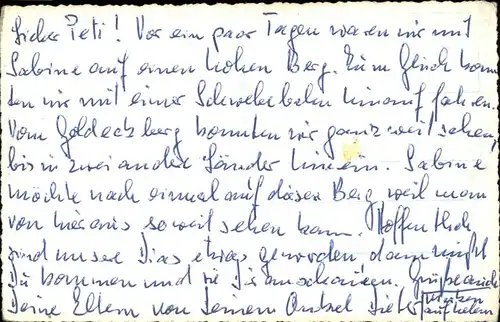 Lieber Peti! Vor ein paar Tagen waren wir mit
Sabine auf einen hohen Berg. Zum Glück konn
ten wir mit einer Schwebebahn hinauf fahren.
Vom Goldeckberg konnten wir ganz weit sehen,
bis in zwei andere Länder hinein. Sabine
möchte noch einmal auf diesen Berg weil man
von hier aus so weit sehen kann. Hoffentlich
sind unsere Dias etwas geworden dann mußt
Du kommen und sie Dir anschauen. Grüße auch
Deine Eltern von Deinem Onkel Dieter